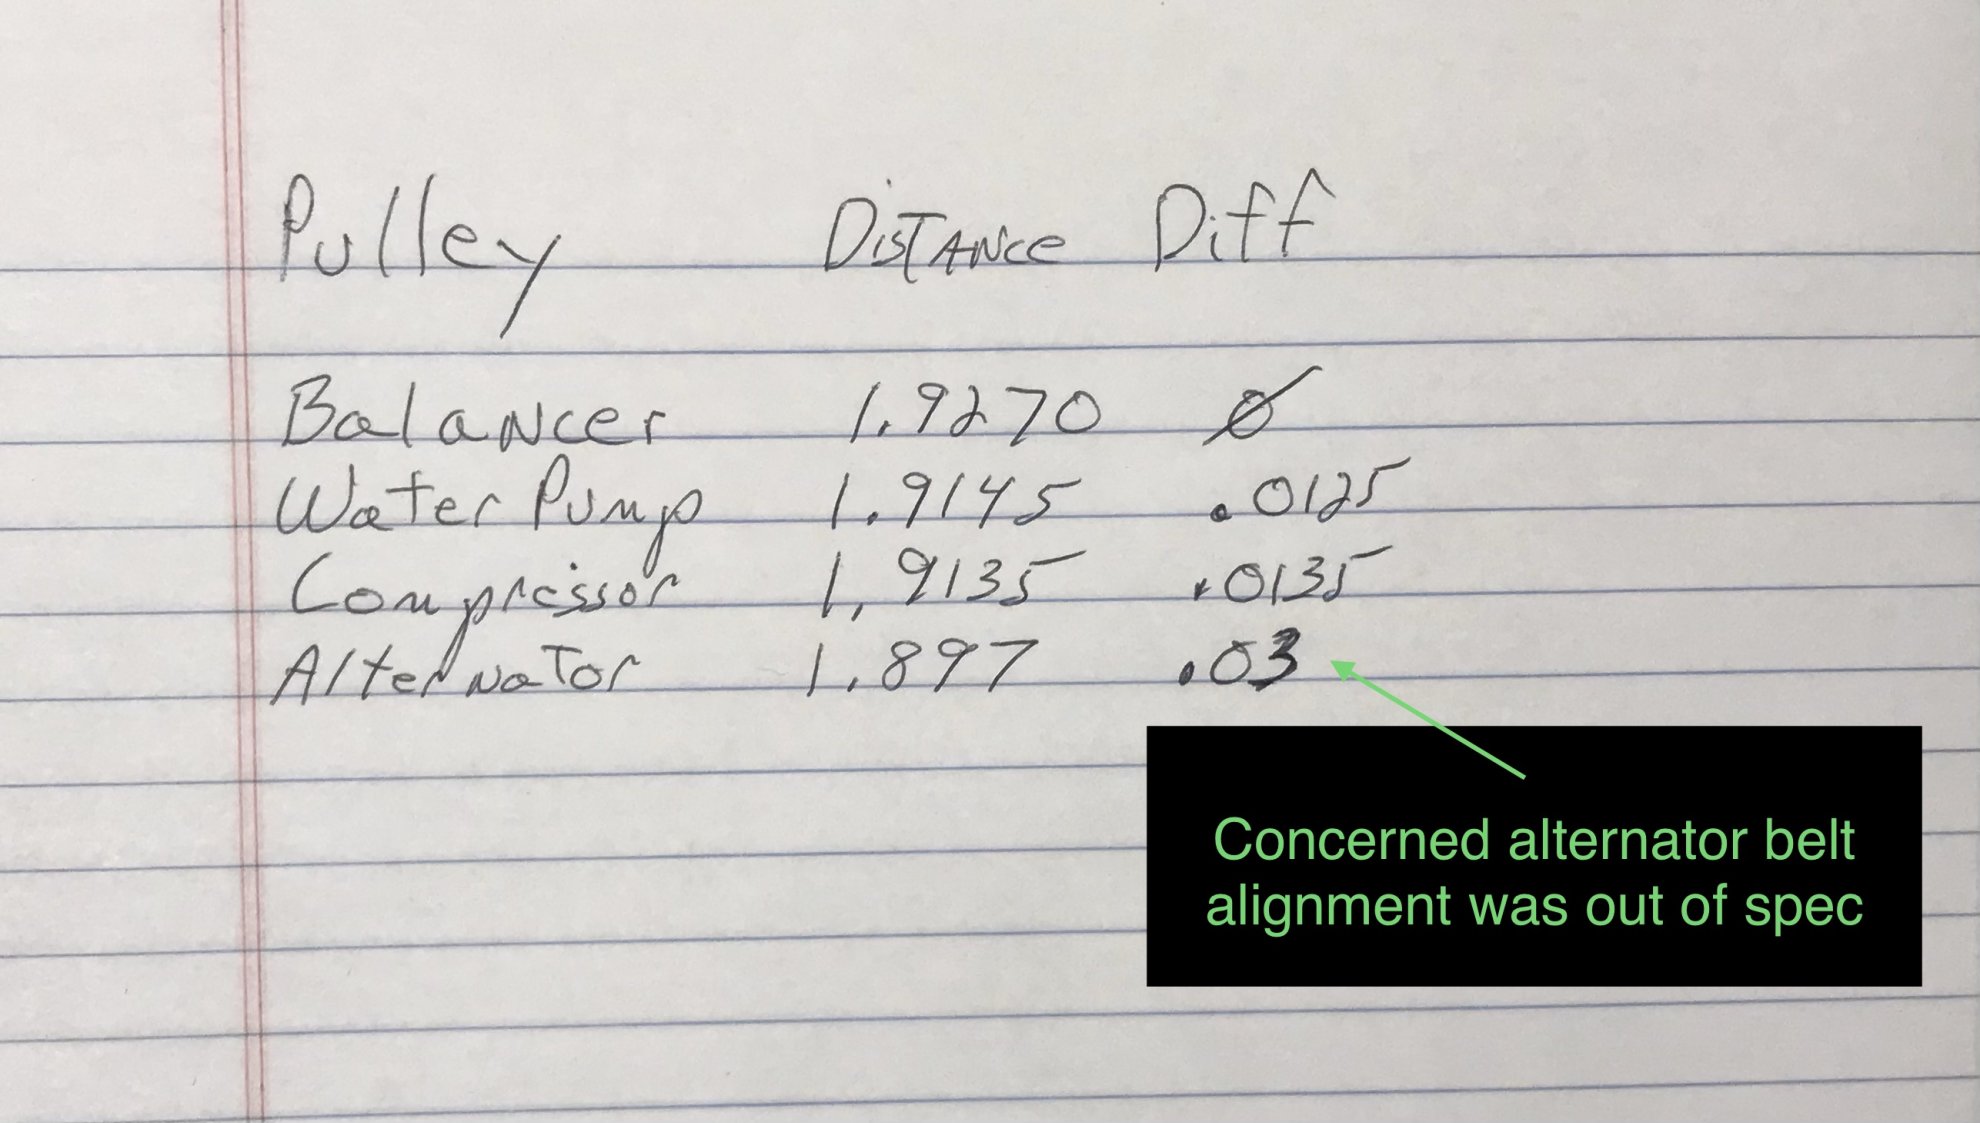 Pulley Distance Diff
Balancer 1.9270 Ø
Water Pump 1.9145 .0125
Compressor 1,9135 .0135
Alternator 1.897 .03
Concerned alternator belt
alignment was out of spec